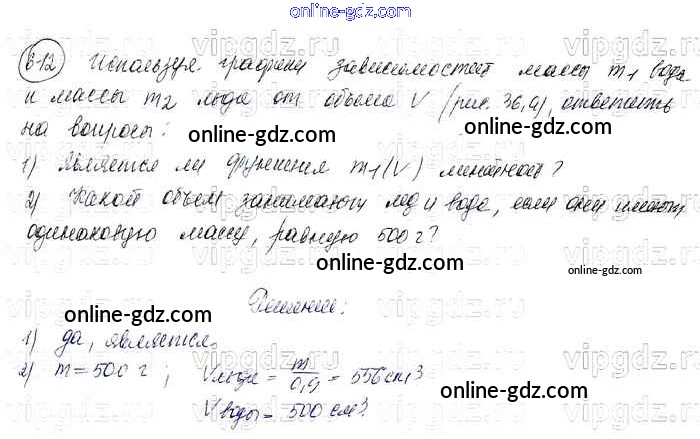 online-gdz.com
612 Используя графики зависимостей массы m₁ воды
и массы m₂ льда от объёма V (рис. 36,а), ответить
на вопросы:
online-gdz.com
online-gdz.com
1) Является ли функция m₁(V) линейной?
2) Какой объем занимают лед и вода, если они имеют
одинаковую массу, равную 500 г?
online-gdz.com
online-gdz.com
Решение:
online-gdz.com
1) да, является.
2) m = 500 г; Vльда = m/0,9 = 556 см³
Vводы = 500 см³.
online-gdz.com
online-gdz.com